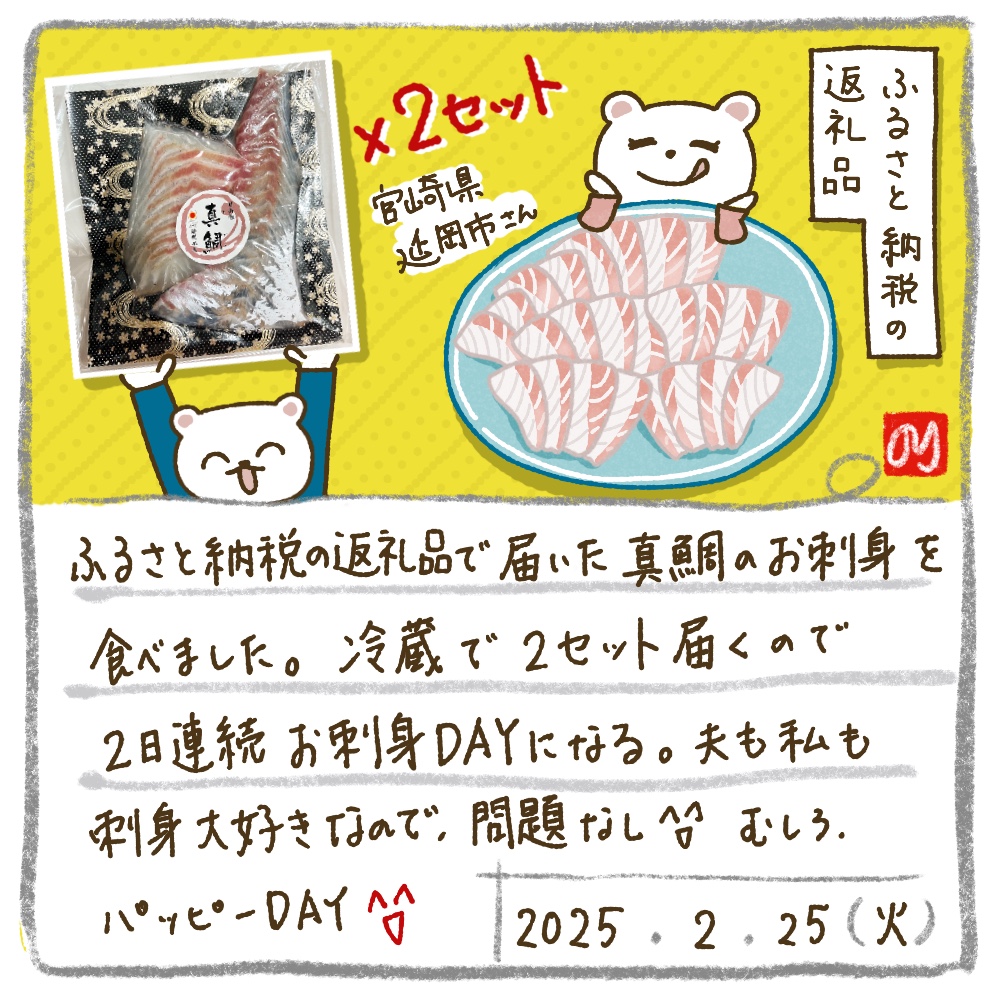 ふるさと納税の
返礼品
×2セット
宮崎県
延岡市さん
真鯛
のり
ふるさと納税の返礼品で届いた真鯛のお刺身を
食べました。冷蔵で2セット届くので
2日連続お刺身DAYになる。夫も私も
刺身大好きなので、問題なし^o^ むしろ、
パッピーDAY ^▽^
2025.2.25(火)